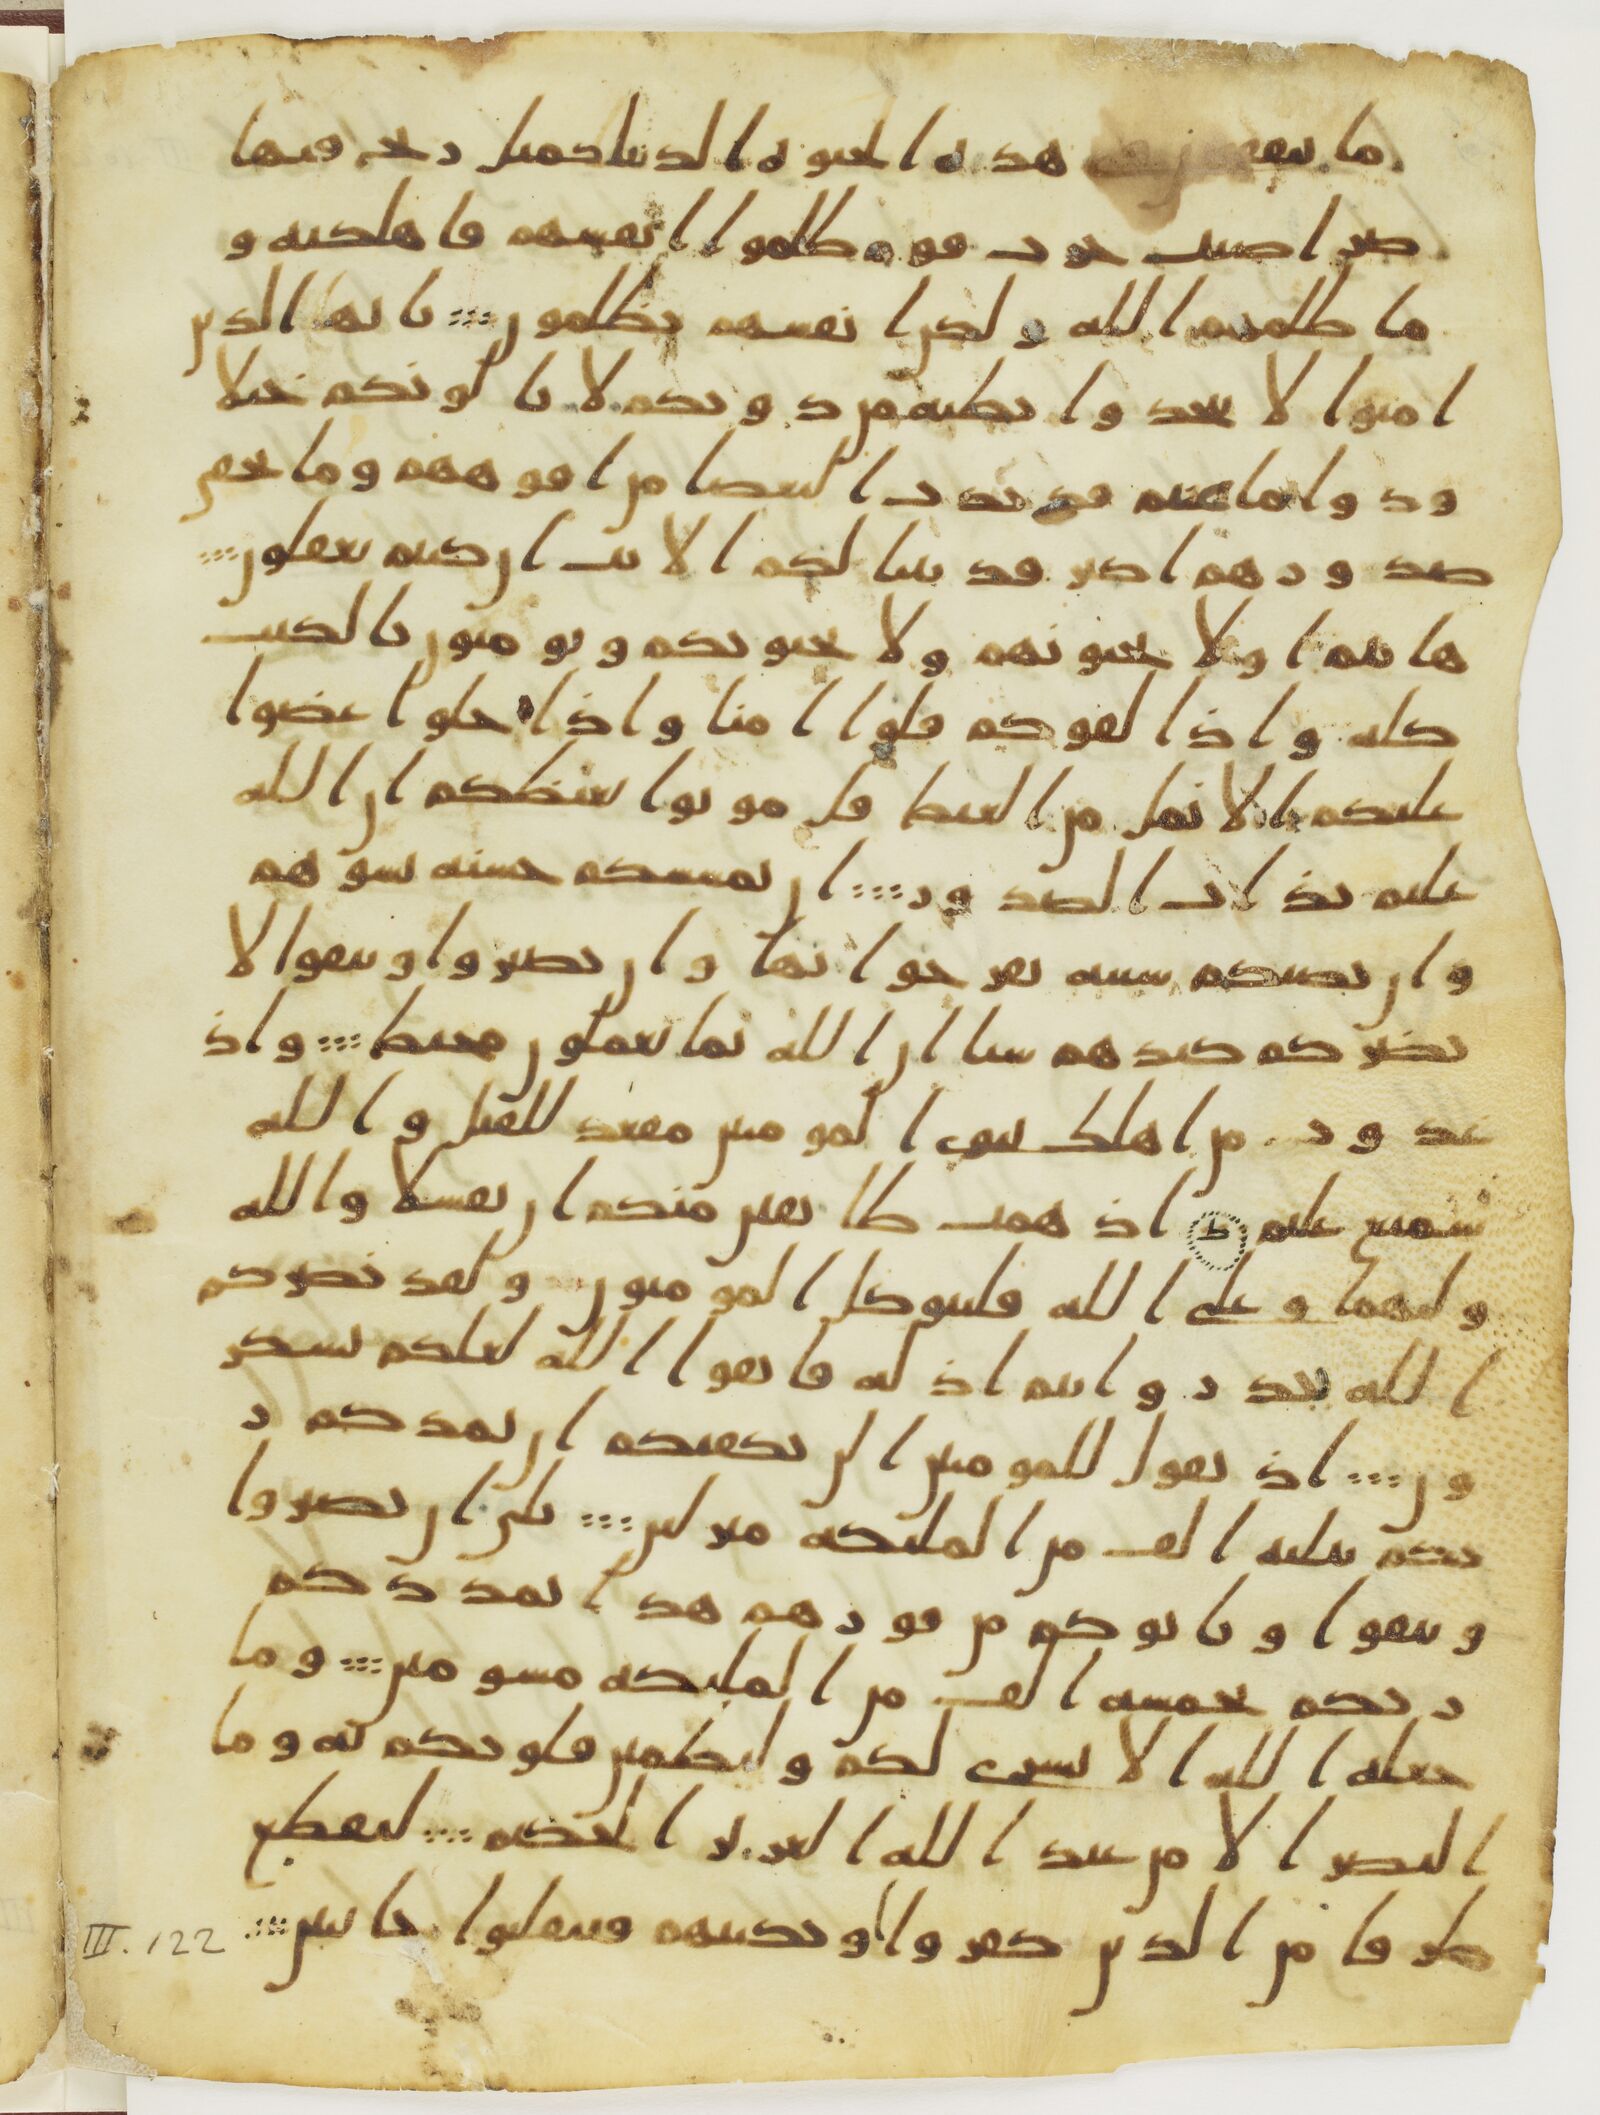 ما ينفقون في هذه الحيوة الدنيا كمثل ريح فيها
صر اصبت حرث قوم ظلموا انفسهم فاهلكته و
ما ظلمهم الله ولكن انفسهم يظلمون يايها الذين
امنوا لا تتخذوا بطنه من دونكم لا يالونكم خبلا
ودوا ما عنتم قد بدت البغضا من افوههم وما تخفي
صدورهم اكبر قد بينا لكم الايت ان كنتم تعقلون
هانتم اولا تحبونهم ولا يحبونكم وتومنون بالكتب
كله واذا لقوكم قلوا امنا واذا خلوا عضوا
عليكم الانمل من الغيظ قل موتوا بغيظكم ان الله
عليم بذات الصدور ان تمسسكم حسنه تسوهم
وان تصبكم سييه يفرحوا بها وان تصبروا وتتقوا لا
يضركم كيدهم شيا ان الله بما يعملون محيط واذ
غدوت من اهلك تبوى المومنين مقعد للقتل والله
سميع عليم اذ همت طايفتن منكم ان تفشلا والله
وليهما وعلى الله فليتوكل المومنون ولقد نصركم
الله ببدر وانتم اذله فاتقوا الله لعلكم تشكر
ون اذ تقول للمومنين الن يكفيكم ان يمدكم ر
بكم بثلثه الف من المليكه منزلين بلى ان تصبروا
وتتقوا وياتوكم من فورهم هذا يمددكم
ربكم بخمسه الف من المليكه مسومين وما
جعله الله الا بشرى لكم ولتطمين قلوبكم به وما
النصر الا من عند الله العزيز الحكيم ليقطع
طرفا من الذين كفروا او يكبتهم فينقلبوا خايبين
III. 122